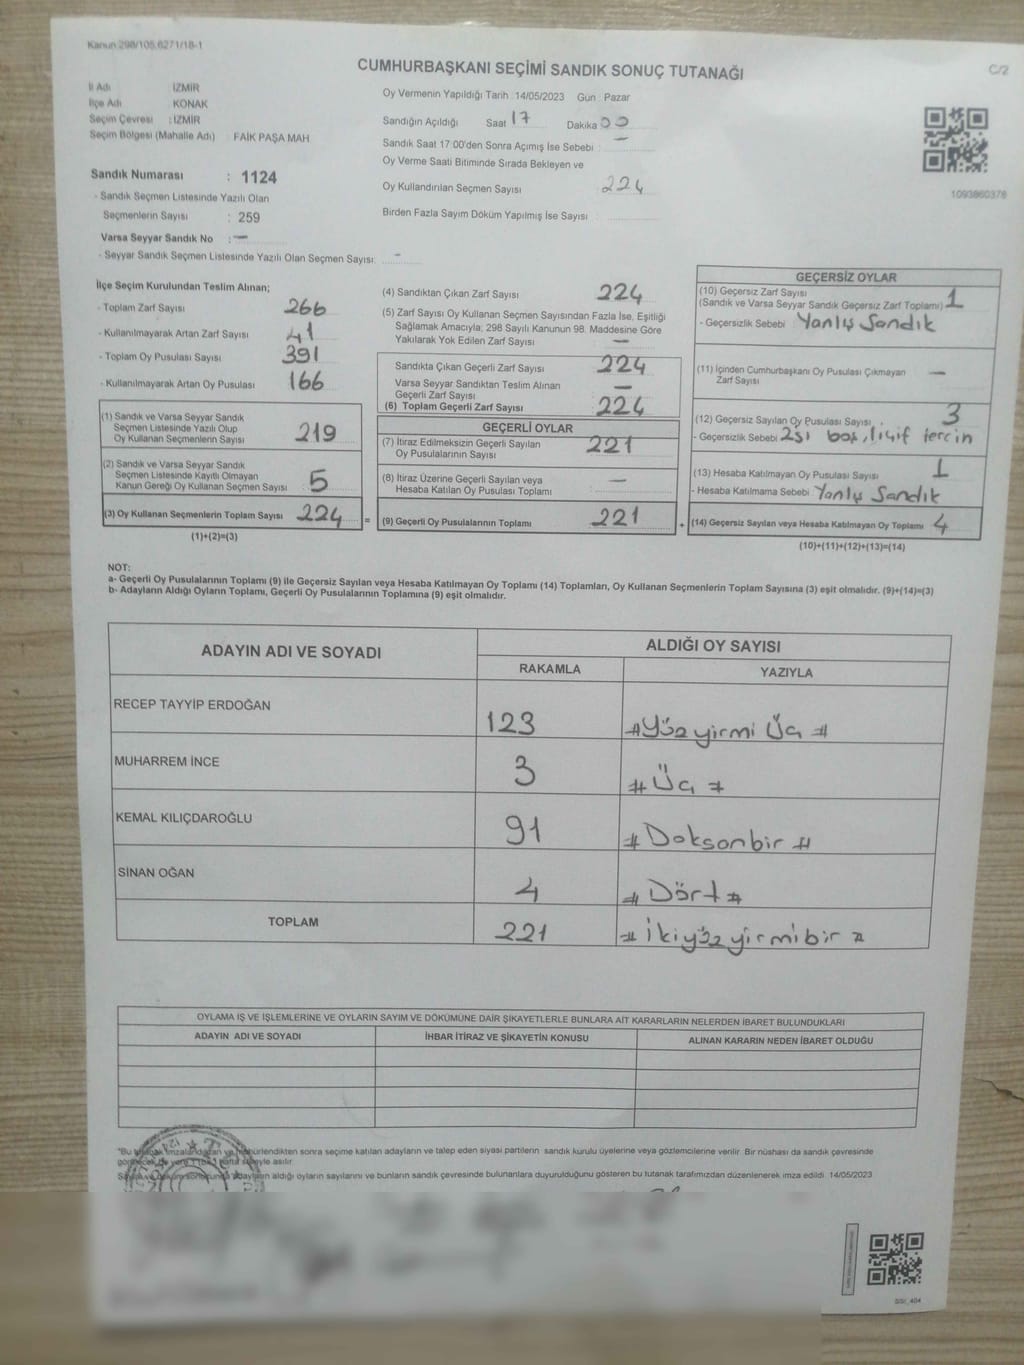 Kanun 298/105,6271/18-1
CUMHURBAŞKANI SEÇİMİ SANDIK SONUÇ TUTANAĞI
C/2
İl Adı : İZMİR
İlçe Adı : KONAK
Seçim Çevresi : İZMİR
Seçim Bölgesi (Mahalle Adı) : FAİK PAŞA MAH
Sandık Numarası : 1124
- Sandık Seçmen Listesinde Yazılı Olan
Seçmenlerin Sayısı : 259
Varsa Seyyar Sandık No : -
- Seyyar Sandık Seçmen Listesinde Yazılı Olan Seçmen Sayısı: -
Oy Vermenin Yapıldığı Tarih : 14/05/2023 Gün : Pazar
Sandığın Açıldığı Saat 17 Dakika 00
Sandık Saat 17 00'den Sonra Açımış İse Sebebi : -
Oy Verme Saati Bitiminde Sırada Bekleyen ve
Oy Kullandırılan Seçmen Sayısı 224
Birden Fazla Sayım Döküm Yapılmış İse Sayısı :
1093860376
İlçe Seçim Kurulundan Teslim Alınan;
- Toplam Zarf Sayısı 266
- Kullanılmayarak Artan Zarf Sayısı 41
- Toplam Oy Pusulası Sayısı 391
- Kullanılmayarak Artan Oy Pusulası 166
(1) Sandık ve Varsa Seyyar Sandık
Seçmen Listesinde Yazılı Olup
Oy Kullanan Seçmenlerin Sayısı 219
(2) Sandık ve Varsa Seyyar Sandık
Seçmen Listesinde Kayıtlı Olmayan
Kanun Gereği Oy Kullanan Seçmen Sayısı 5
(3) Oy Kullanan Seçmenlerin Toplam Sayısı 224 =
(1)+(2)=(3)
(4) Sandıktan Çıkan Zarf Sayısı 224
(5) Zarf Sayısı Oy Kullanan Seçmen Sayısından Fazla İse, Eşitliği
Sağlamak Amacıyla; 298 Sayılı Kanunun 98. Maddesine Göre
Yakılarak Yok Edilen Zarf Sayısı -
Sandıkta Çıkan Geçerli Zarf Sayısı 224
Varsa Seyyar Sandıktan Teslim Alınan
Geçerli Zarf Sayısı -
(6) Toplam Geçerli Zarf Sayısı 224
GEÇERLİ OYLAR
(7) İtiraz Edilmeksizin Geçerli Sayılan
Oy Pusulalarının Sayısı 221
(8) İtiraz Üzerine Geçerli Sayılan veya
Hesaba Katılan Oy Pusulası Toplamı -
(9) Geçerli Oy Pusulalarının Toplamı 221 +
GEÇERSİZ OYLAR
(10) Geçersiz Zarf Sayısı
(Sandık ve Varsa Seyyar Sandık Geçersiz Zarf Toplamı) 1
- Geçersizlik Sebebi : Yanlış Sandık
(11) İçinden Cumhurbaşkanı Oy Pusulası Çıkmayan
Zarf Sayısı -
(12) Geçersiz Sayılan Oy Pusulası Sayısı 3
- Geçersizlik Sebebi 2si boş,
(13) Hesaba Katılmayan Oy Pusulası Sayısı 1
- Hesaba Katılmama Sebebi Yanlış Sandık
(14) Geçersiz Sayılan veya Hesaba Katılmayan Oy Toplamı 4
(10)+(11)+(12)+(13)=(14)
NOT:
a- Geçerli Oy Pusulalarının Toplamı (9) ile Geçersiz Sayılan veya Hesaba Katılmayan Oy Toplamı (14) Toplamları, Oy Kullanan Seçmenlerin Toplam Sayısına (3) eşit olmalıdır. (9)+(14)=(3)
b- Adayların Aldığı Oyların Toplamı, Geçerli Oy Pusulalarının Toplamına (9) eşit olmalıdır.
ADAYIN ADI VE SOYADI
ALDIĞI OY SAYISI
RAKAMLA YAZIYLA
RECEP TAYYİP ERDOĞAN 123 #Yüzyirmi Üç#
MUHARREM İNCE 3 #Üç#
KEMAL KILIÇDAROĞLU 91 #Doksanbir#
SİNAN OĞAN 4 #Dört#
TOPLAM 221 #İkiyüzyirmibir#
OYLAMA İŞ VE İŞLEMLERİNE VE OYLARIN SAYIM VE DÖKÜMÜNE DAİR ŞİKAYETLERLE BUNLARA AİT KARARLARIN NELERDEN İBARET BULUNDUKLARI
ADAYIN ADI VE SOYADI İHBAR İTİRAZ VE ŞİKAYETİN KONUSU ALINAN KARARIN NEDEN İBARET OLDUĞU
"Bu sonra seçime katılan adayların ve talep eden siyasi partilerin sandık kurulu üyelerine veya gözlemcilerine verilir. Bir nüshası da sandık çevresinde
asılır.
aldığı oyların sayılarını ve bunların sandık çevresinde bulunanlara duyurulduğunu gösteren bu tutanak tarafımızdan düzenlenerek imza edildi. 14/05/2023